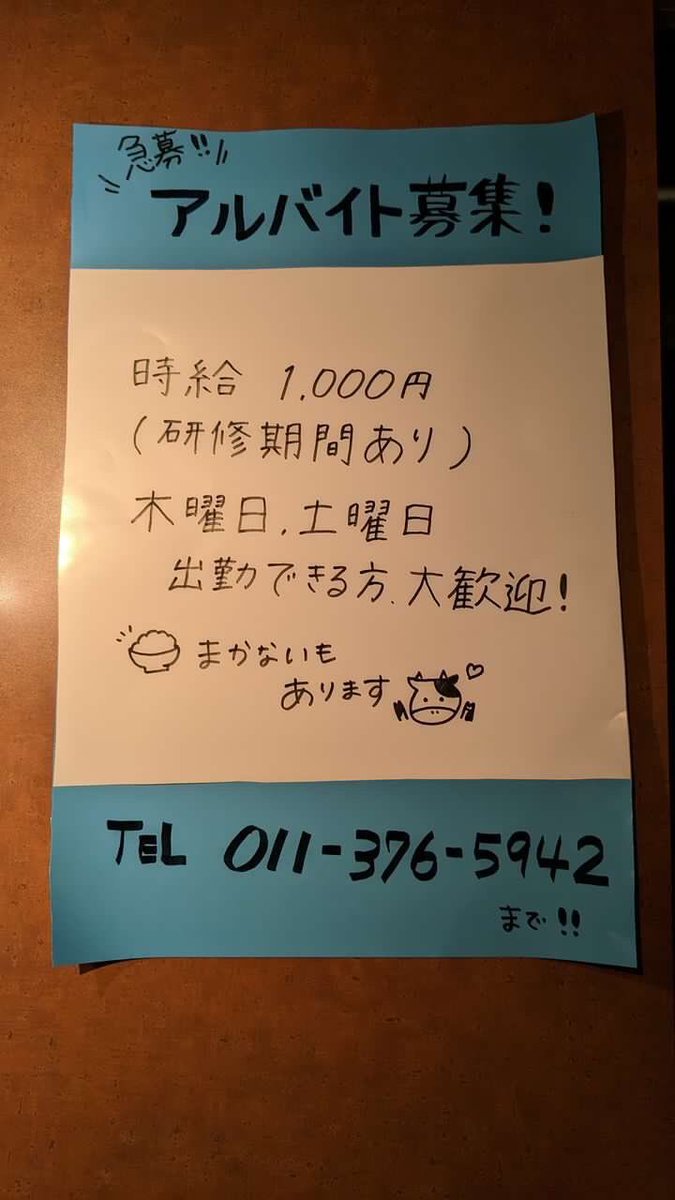 急募!!
アルバイト募集!
時給 1,000円
(研修期間あり)
木曜日,土曜日
出勤できる方、大歓迎!
まかないも
あります
TEL 011-376-5942
まで!!